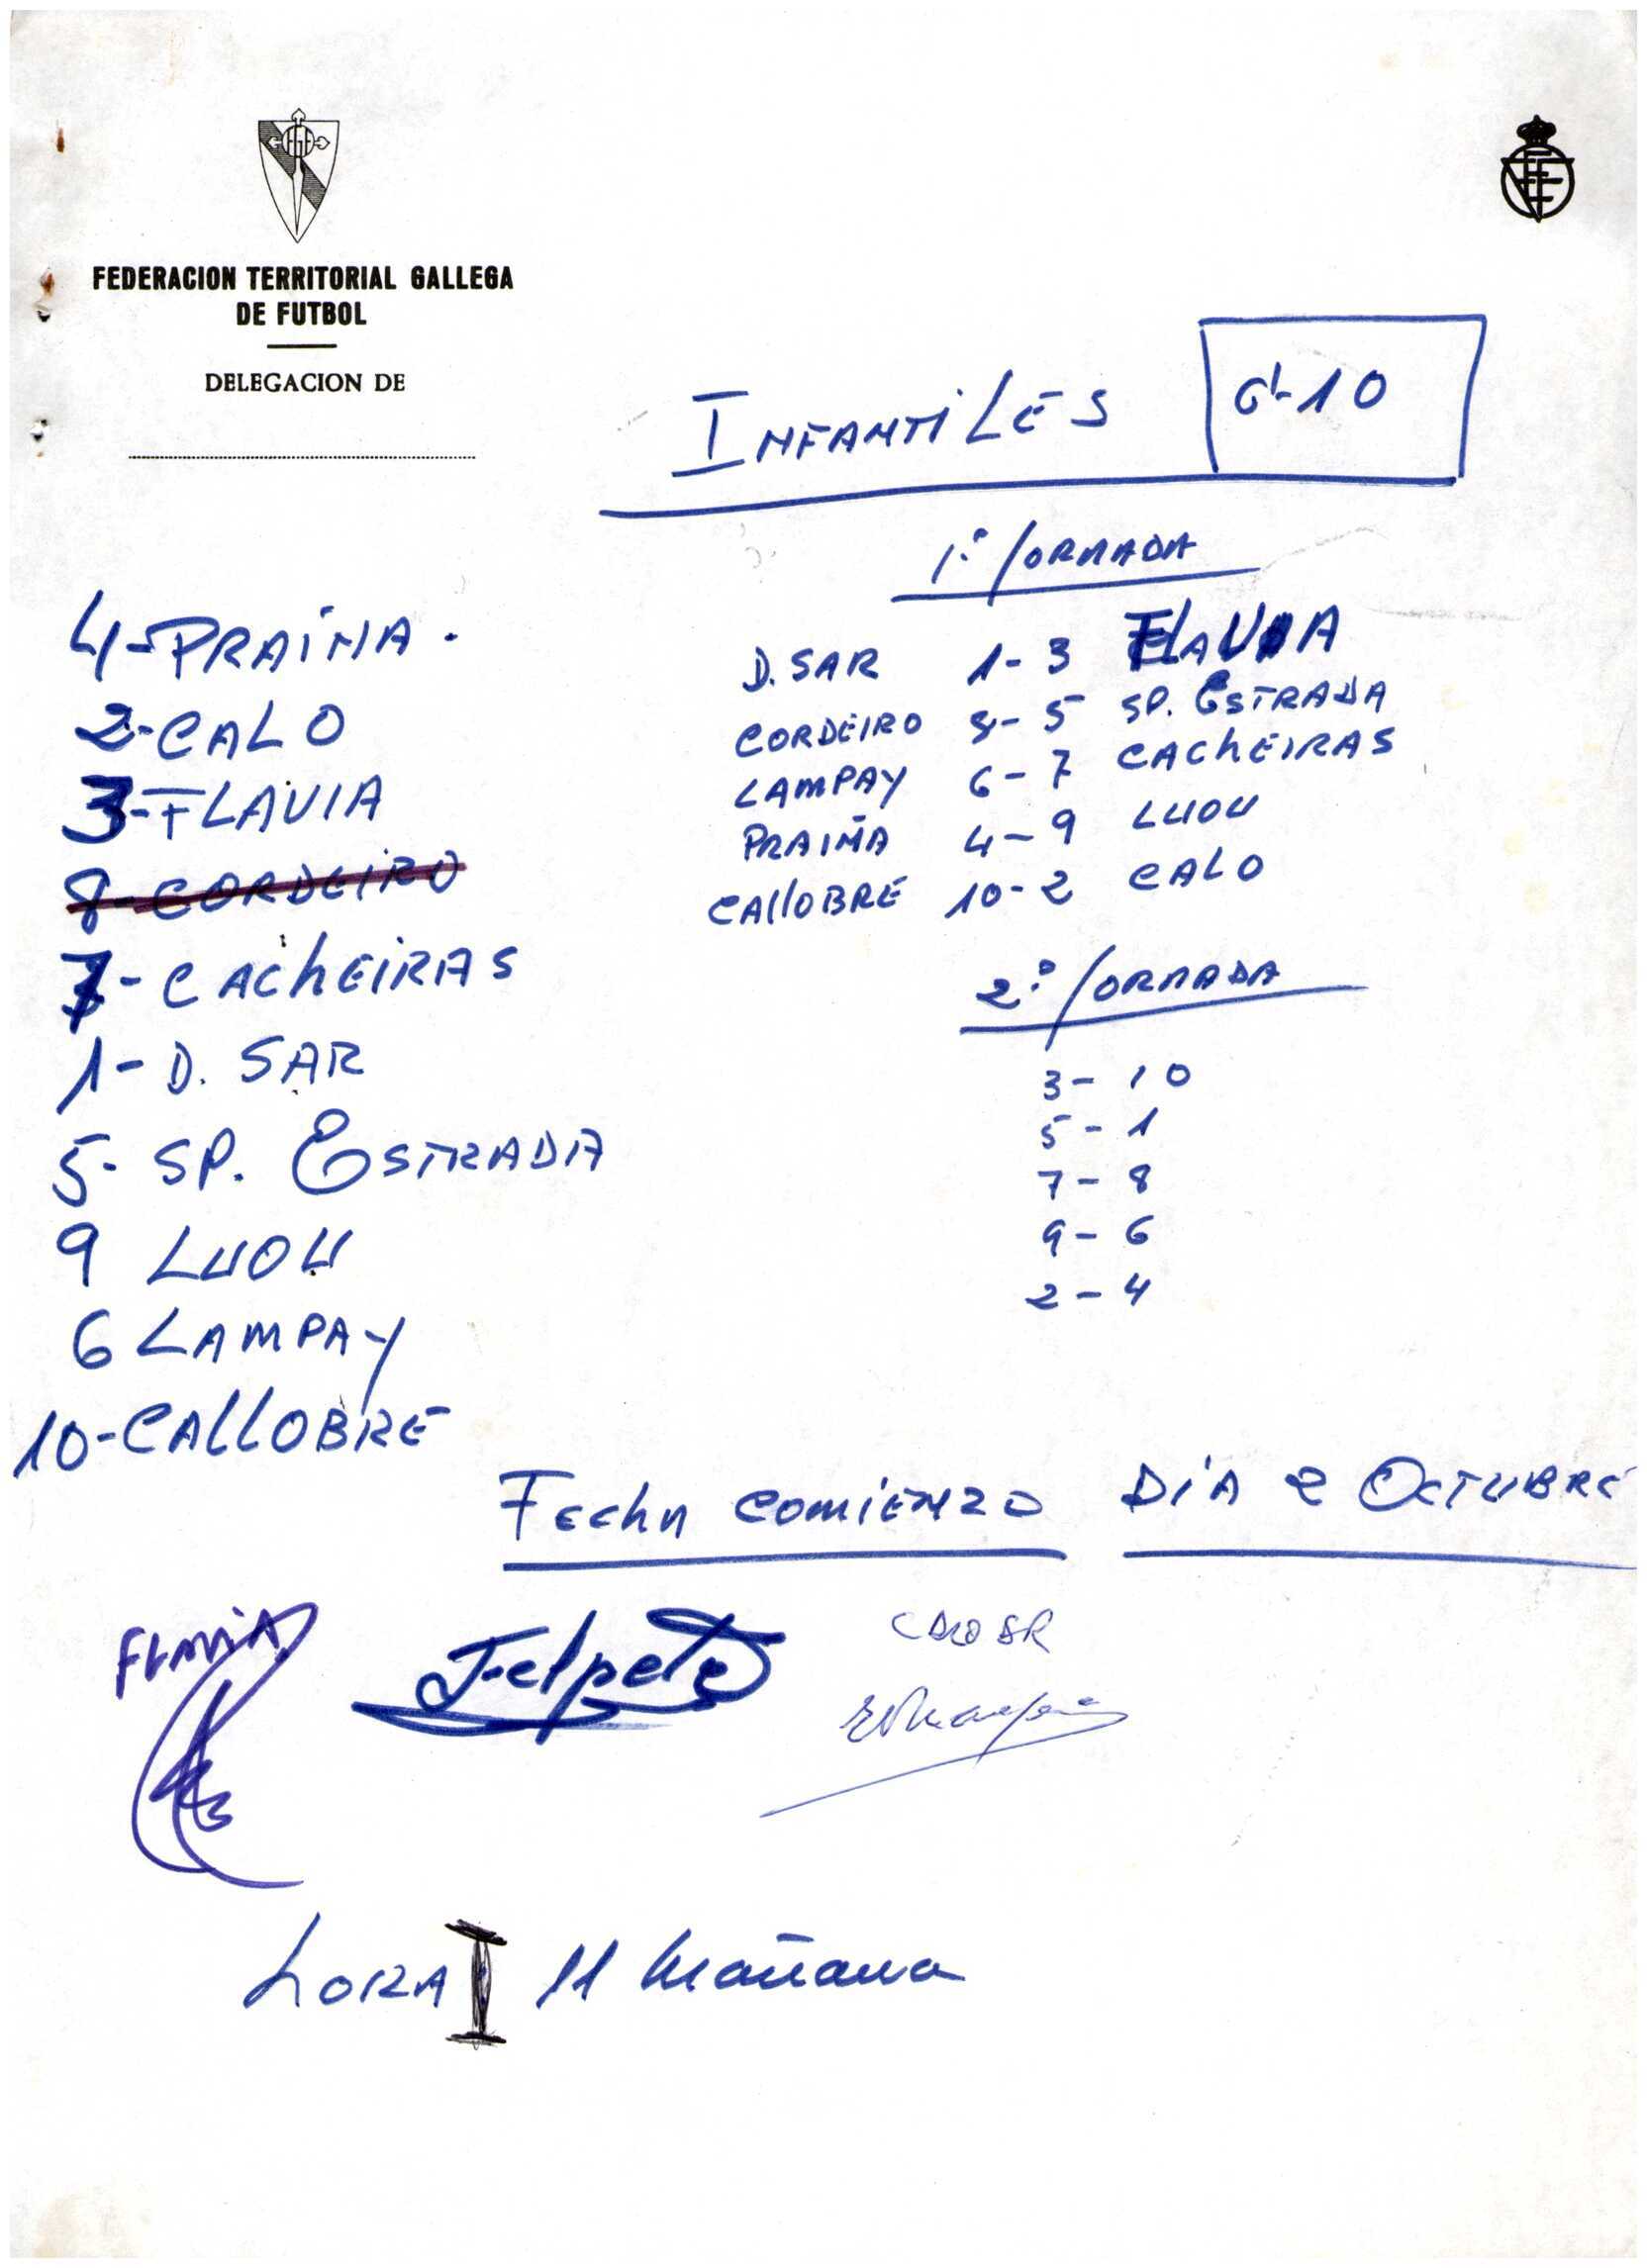 FEDERACION TERRITORIAL GALLEGA
DE FUTBOL
DELEGACION DE
INFANTILES
G-10
1ª JORNADA
4-PRAIÑA.
2-CALO
3-FLAVIA
8-CORDEIRO
7-CACHEIRAS
1-D. SAR
5-SP. ESTRADA
9 LUOU
6 LAMPAY
10-CALLOBRE
D. SAR 1-3 FLAVIA
CORDEIRO 8-5 SP. ESTRADA
LAMPAY 6-7 CACHEIRAS
PRAIÑA 4-9 LUOU
CALLOBRE 10-2 CALO
2ª JORNADA
3-10
5-1
7-8
9-6
2-4
FECHA COMIENZO DIA 2 OCTUBRE
FLAVIA
HORA 11 Mañana